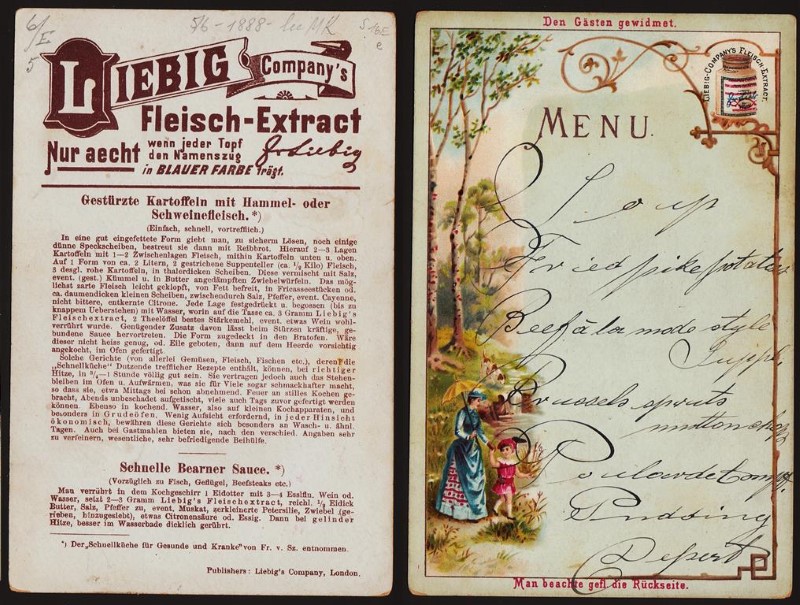 5/6 - 1888 -
LIEBIG Company's
Fleisch-Extract
Nur aecht wenn jeder Topf
den Namenszug JvLiebig
in BLAUER FARBE trägt.
Gestürzte Kartoffeln mit Hammel- oder
Schweinefleisch.*)
(Einfach, schnell, vortrefflich.)
In eine gut eingefettete Form giebt man, zu sicherm Lösen, noch einige
dünne Speckscheiben, bestreut sie dann mit Reibbrot. Hierauf 2—3 Lagen
Kartoffeln mit 1—2 Zwischenlagen Fleisch, mithin Kartoffeln unten u. oben.
Auf 1 Form von ca. 2 Litern, 2 gestrichene Suppenteller (ca. 1/2 Kilo) Fleisch,
3 desgl. rohe Kartoffeln, in thalerdicken Scheiben. Diese vermischt mit Salz,
event. (gest.) Kümmel u. in Butter angedämpften Zwiebelwürfeln. Das mög-
lichst zarte Fleisch leicht geklopft, von Fett befreit, in Fricasseestücken od.
ca. daumendicken kleinen Scheiben, zwischendurch Salz, Pfeffer, event. Cayenne,
nicht bittere, entkernte Citrone. Jede Lage festgedrückt u. begossen (bis zu
knappem Ueberstehen) mit Wasser, worin auf die Tasse ca. 3 Gramm Liebig's
Fleischextract, 2 Theelöffel bestes Stärkemehl, event. etwas Wein wohl-
verrührt wurde. Genügender Zusatz davon lässt beim Stürzen kräftige, ge-
bundene Sauce hervortreten. Die Form zugedeckt in den Bratofen. Wäre
dieser nicht heiss genug, od. Eile geboten, dann auf dem Heerde vorsichtig
angekocht, im Ofen gefertigt.
Solche Gerichte (von allerlei Gemüsen, Fleisch, Fischen etc.), deren die
„Schnellküche" Dutzende trefflicher Rezepte enthält, können, bei richtiger
Hitze, in 3/4—1 Stunde völlig gut sein. Sie vertragen jedoch auch das Stehen-
bleiben im Ofen u. Aufwärmen, was sie für Viele sogar schmackhafter macht,
so dass sie, etwa Mittags bei schon abnehmend. Feuer an stilles Kochen ge-
bracht, Abends unbeschadet aufgetischt, viele auch Tags zuvor gefertigt werden
können. Ebenso in kochend. Wasser, also auf kleinen Kochapparaten, und
besonders in Grudeöfen. Wenig Aufsicht erfordernd, in jeder Hinsicht
ökonomisch, bewähren diese Gerichte sich besonders an Wasch- u. ähnl.
Tagen. Auch bei Gastmahlen bieten sie, nach den verschied. Angaben sehr
zu verfeinern, wesentliche, sehr befriedigende Beihilfe.
Schnelle Bearner Sauce. *)
(Vorzüglich zu Fisch, Geflügel, Beefsteaks etc.)
Man verrührt in dem Kochgeschirr 1 Eidotter mit 3—4 Esslflu. Wein od.
Wasser, setzt 2—3 Gramm Liebig's Fleischextract, reichl. 1/2 Eidick
Butter, Salz, Pfeffer zu, event. Muskat, zerkleinerte Petersilie, Zwiebel (ge-
rieben, hinzugezieht), etwas Citronensäure od. Essig. Dann bei gelinder
Hitze, besser im Wasserbade dicklich gerührt.
*) Der „Schnellküche für Gesunde und Kranke" von Fr. v. Sz. entnommen.
Publishers: Liebig's Company, London.
Den Gästen gewidmet.
LIEBIG-COMPANY'S FLEISCH-EXTRACT.
MENU.
Soup
Fried pike potatoes
Beef à la mode style
Brussels sprouts
mutton chops
Poularde
Pudding
Desert
Man beachte gefl. die Rückseite.